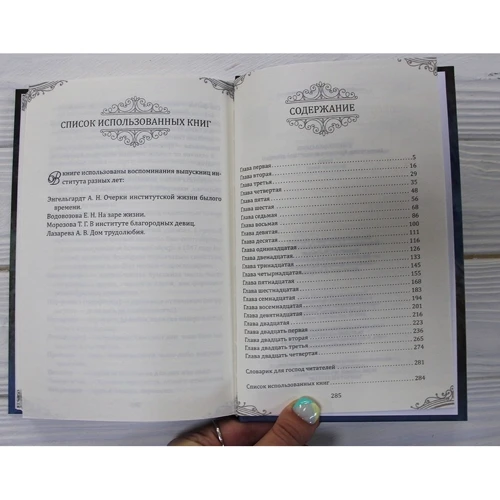 СПИСОК ИСПОЛЬЗОВАННЫХ КНИГ
В книге использованы воспоминания выпускниц ин-
ститута разных лет:
Энгельгардт А. Н. Очерки институтской жизни былого
времени.
Водовозова Е. Н. На заре жизни.
Морозова Т. Г. В институте благородных девиц.
Лазарева А. В. Дом трудолюбия.
СОДЕРЖАНИЕ
Глава первая 5
Глава вторая 16
Глава третья 29
Глава четвертая 35
Глава пятая 48
Глава шестая 56
Глава седьмая 68
Глава восьмая 88
Глава девятая 100
Глава десятая 111
Глава одиннадцатая 126
Глава двенадцатая 133
Глава тринадцатая 145
Глава четырнадцатая 155
Глава пятнадцатая 168
Глава шестнадцатая 183
Глава семнадцатая 194
Глава восемнадцатая 201
Глава девятнадцатая 216
Глава двадцатая 223
Глава двадцать первая 236
Глава двадцать вторая 265
Глава двадцать третья 274
Глава двадцать четвертая
Словарик для господ читателей 281
Список использованных книг 284
285